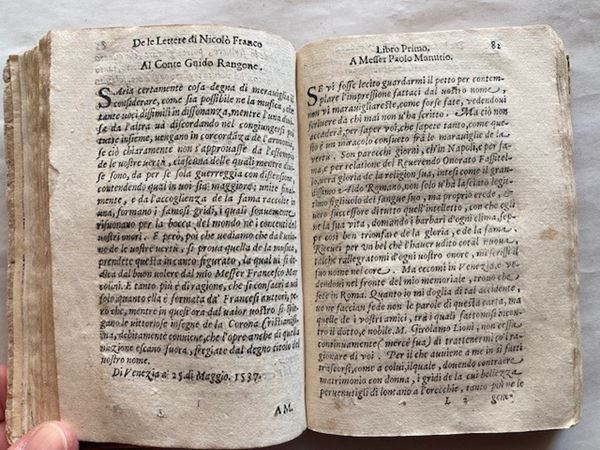 De le Lettere di Nicolò Franco
Al Conte Guido Rangone.
SAria certamente cosa degna di meraviglia il
considerare, come sia possibile ne la musica, che
tante voci dissimili in dissonanza, mentre l'una di-
visa da l'altra và discordando nel congiungersi poi
tutte insieme, vengano in concordanza de l'armonia,
se ciò chiaramente non s'approuasse da l'essempio
de le uostre uertù, ciascuna delle quali mentre diui-
se sono, da per se sola guerreggia con distensione,
contendendo qual in uoi sia maggiore; unite final-
mente, e da l'accoglienza de la fama raccolte in
una, formano i famosi gridi, i quali soauemente
risuonano per la bocca del mondo ne i contenti dei
uostri onori. E però, poi che uediamo che da l'unio
ne de le uostre uertù, si proua quella de la musica,
prendete questa in canto figurato, la qual ui si de-
dica dal buon uolere dal mio Messer Francesco Mar
colini. E tanto più è di ragione, che si consacri à uoi
solo, quanto ella è formata da' Francesi autori, per-
ò che, mentre in quest'ora dal ualor uostro si spin-
gano le uittoriose insegne de la Corona Christianissima,
debitamente conuiene, che l'opre anche di quella
nazione escano fuora, fregiate dal degno titolo del
uostro nome.
Di Venezia à 25. di Maggio. 1537.
A M.
Libro Primo. 82
A Messer Paolo Manutio.
SE vi fosse lecito guardarmi il petto per contem-
plare l'impressione fattaci dal uostro nome,
non vi marauigliareste, come forse fate, vedendoui
scriuere da chi mai non u'ha scritto. Ma ciò non
accaderà, per saper voi, che sapete tanto, come que-
sto è un miracolo consueto frà le marauiglie de la
vertù. Son parecchi giorni, ch'in Napoli, e per fa-
ma, e per relatione del Reuerendo Onorato Fassitel-
lo, vera gloria de la religion sua, intesi come il gran-
dissimo Aldo Romano, non solo u'ha lasciato legit-
timo figliuolo del sangue suo, ma proprio erede, e
uero successore di tutto quell'intelletto, con che egli
ne la sua vita, domando i barbari d'ogni clima, sep-
pe così ben trionfare de la gloria, e de la fama.
Riceuei per un bel chè l'hauer udito cotal nuoua,
talche rallegratomi d'ogni uostro onore, mi scrissi il
suo nome nel core. Ma eccomi in Venezia, e ve-
dendoui nel fronte del mio memoriale, trouo che
sete in Roma. Quanto io mi doglia di tal accidente,
ue ne faccian fede non le parole di questa carta, ma
quelle de i vostri amici, trà i quali fattomisi incon-
tro il dotto, e nobile. M. Girolamo Lioni, non cesse
continuamente (mercè sua) di trattenermi co'l ra-
gionare di voi. Per il che auuiene a me in sì fatti
trascorsi, come a colui, il quale, douendo contraere
matrimonio con donna, i gridi de la cui bellezza
peruenutigli di lontano a l'orecchie, tanto più ne lo
L 2